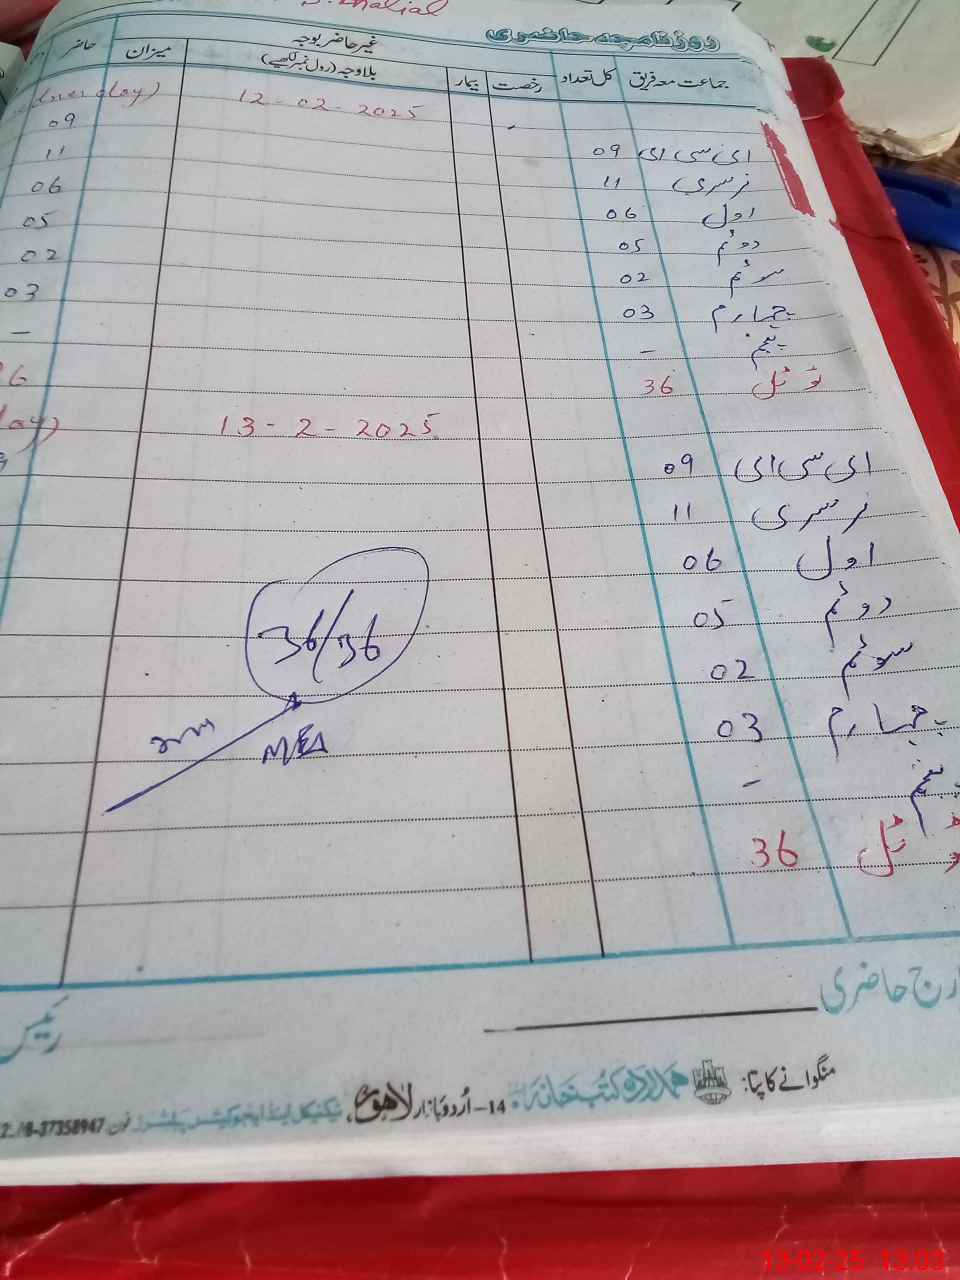 روزنامچہ حاضری
جماعت معہ فریق کل تعداد رخصت بیمار غیر حاضر بوجہ بلا وجہ (رول نمبر لکھیے) میزان حاضر
12-02-2025 day)
ای سی ای 09 09
نرسری 11 11
اول 06 06
دوئم 05 05
سوئم 02 02
چہارم 03 03
پنجم - -
ٹوٹل 36 6
13-2-2025 day)
ای سی ای 09
نرسری 11
اول 06
دوئم 05
سوئم 02
چہارم 03
پنجم -
ٹوٹل 36
36/36
MEA
رج حاضری
منگوانے کا پتا: ہمدرد کتب خانہ 14-اُردو بازار لاہور فون 37358947
13-02-25 13:03